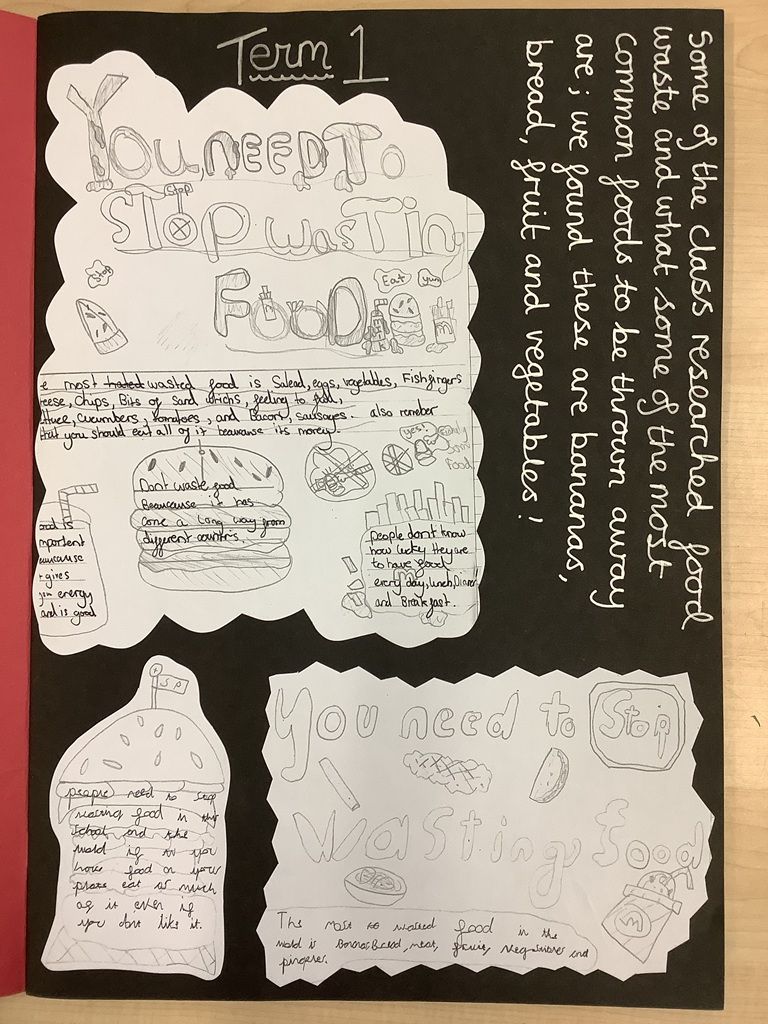 Term 1
You NEED To
Stop
STOP wasTing
Stop
FOOD
Eat
yum
e most wasted food is Salead, eggs, vegetables, Fishfingers
eese, Chips, Bits of Sand whichs, feeling to full,
ttuce, cucumbers, tomatoes, and Bacon, sausages. also remeber
that you should eat all of it beacause its money.
yes!
Finaly
som
food
Dont waste food
Beacause it has
come a long way from
different countrs.
ood is
mportent
eacause
t gives
you energy
and is good
people don't know
how lucky they are
to have food
every day, lunch, Dinner
and Breakfast.
Some of the class researched food
waste and what some of the most
common foods to be thrown away
are; we found these are bananas,
bread, fruit and vegetables!
people need to stop
wasting food in this
school and the
world if
food on your
plate eat as much
as it even if
you dont like it.
You need to Stop
Wasting food
The most wasted food in the
world is Banana, Bread, meat, fruit, and